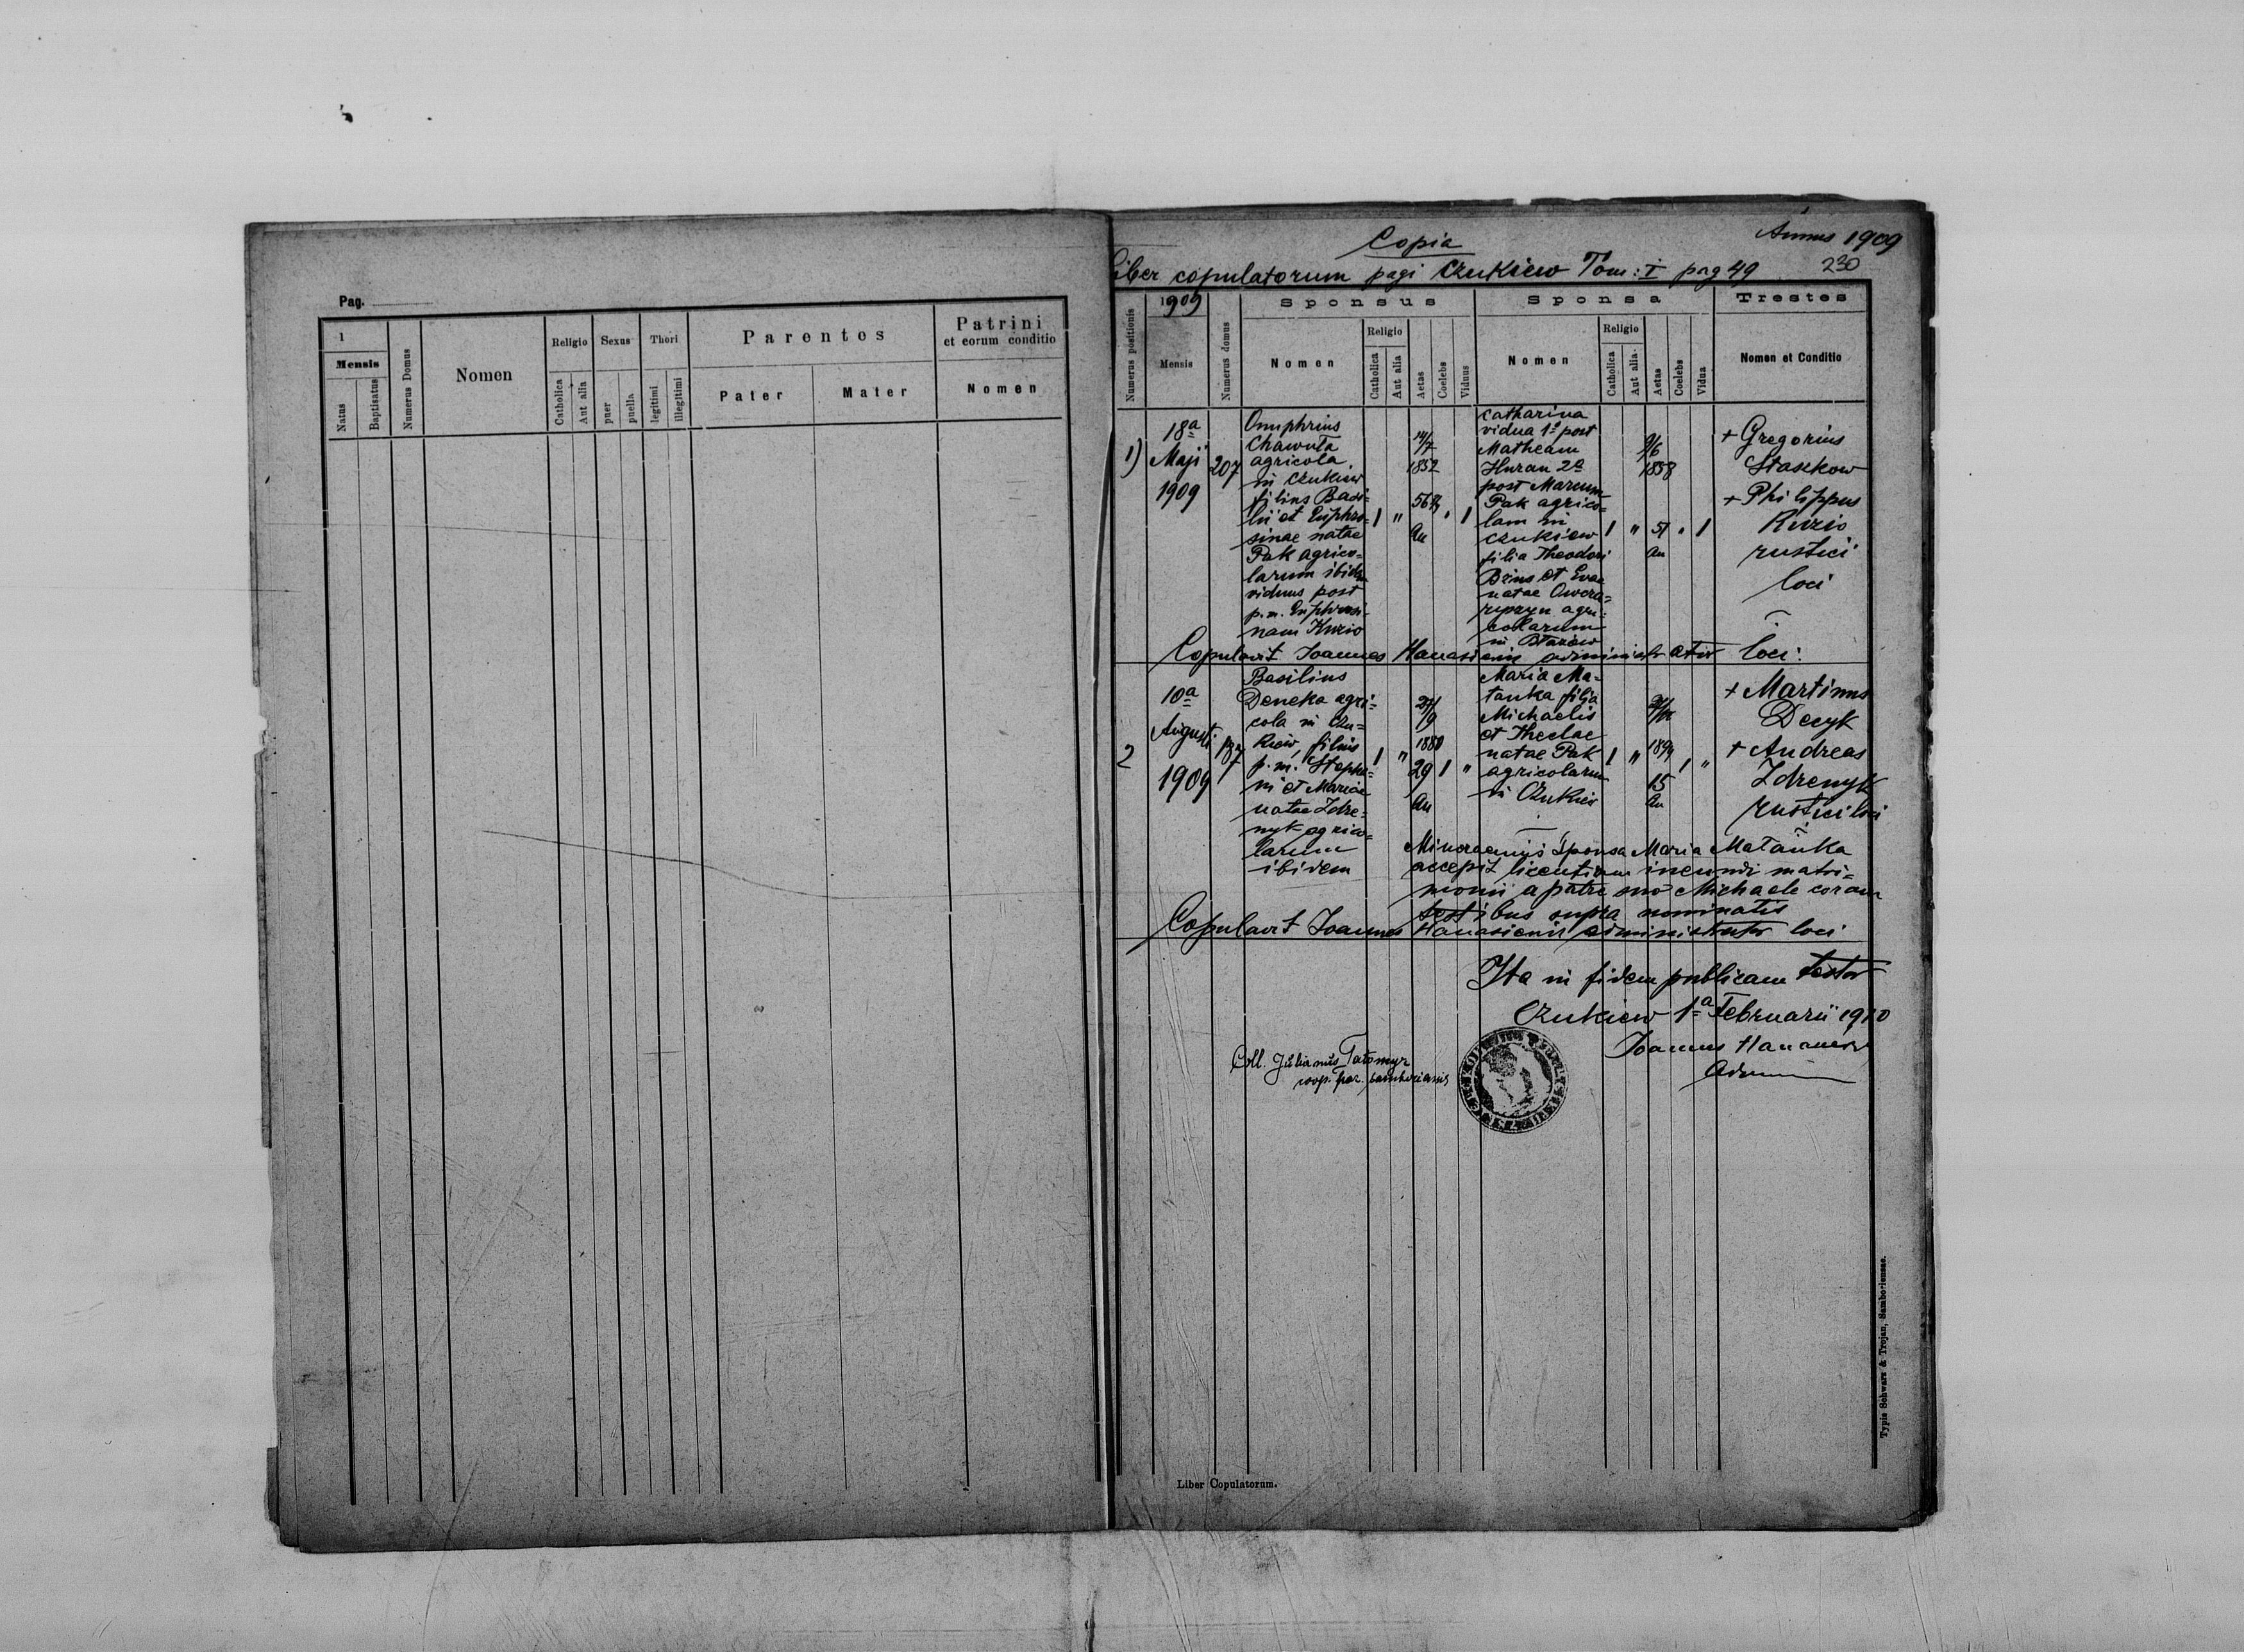 Pag.
1
Mensis
Natus
Baptisatus
Numerus Domus
Nomen
Religio
Catholica
Aut alia
Sexus
puer
puella
Thori
legitimi
illegitimi
Parentes
Pater
Mater
Patrini
et eorum conditio
Nomen
Copia
Annus 1909
Liber copulatorum pagi Czukiew Tom: I pag 49
230
Numerus positionis
1909
Mensis
Numerus domus
Sponsus
Nomen
Religio
Catholica
Aut alia
Aetas
Coelebs
Viduus
Sponsa
Nomen
Religio
Catholica
Aut alia
Aetas
Coelebs
Vidua
Trestes
Nomen et Conditio
1)
18a
Maji
1909
207
Onuphrius
Chawuta
agricola
in Czukiew
filius Basi-
lii et Euphro-
sinae natae
Pak agrico-
larum ibidem
viduus post
p.m. Euphrosi-
nam Kuzio
1 "
14/7
1852
56
an
" 1
Catharina
vidua 1o post
Matheum
Huran 2o
post Marcum
Pak agrico-
lam in
Czukiew
filia Theodori
Brius et Evae
natae
agri-
colarum
in
1 "
9/6
1858
51
an
" 1
+ Gregorius
Staszkow
+ Philippus
Kuzio
rustici
loci
Copulavit Joannes administrator loci.
2
10a
Augusti
1909
137
Basilius
Deneka agri-
cola in Czu-
kiew, filius
p.m. Stepha-
ni et Mariae
natae Zdre-
nyk agrico-
larum
ibidem
1 "
27/9
1880
29
an
1 "
Maria Ma-
tanka filia
Michaelis
et Theclae
natae Pak
agricolarum
in Czukiew
1 "
1894
15
an
1 "
+ Martinus
Decyk
+ Andreas
Zdrenyk
rustici loci
Minorennis sponsa Maria Matanka
accepit licentiam ineundi matri-
monii a patre suo Michaele coram
testibus supra nominatis
Copulavit Joannes administrator loci
Ita in fidem publicam testor
Czukiew 1a Februarii 1910
Joannes
Adm
Coll. Julianus Tatomyr
coop. par. samboriensis
Liber Copulatorum.
Typis Schwarz & Trojan, Samboriensae.